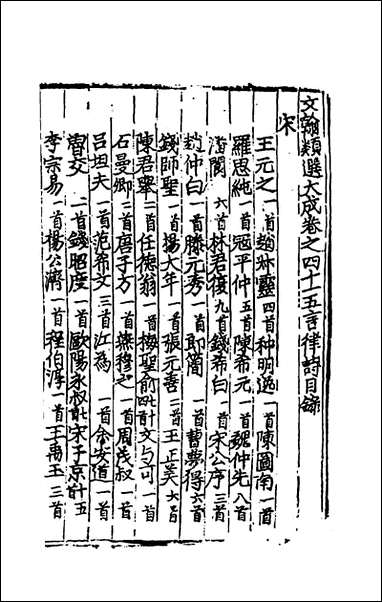 文翰類選大成卷之四十五言律詩目錄
宋
王元之一首趙冰靈四首种明逸一首陳圖南一首
羅思純一首寇平仲五首陳希元一首魏仲先八首
潘閬六首林君復九首錢希白一首宋公序三首
趙仲白一首滕元秀一首即簡一首曹夢得六首
錢師聖一首楊大年一首張元善二首王正美六首
陳君舉二首任德翁一首梅聖俞四十文與可一首
石曼卿一首唐子方一首蘇穆之一首周茂叔一首
呂坦夫一首范希文三首江為一首余安道一首
曾交二首錢昭度一首歐陽永叔宋子京十五
李宗易一首楊公濟一首程伯淳一首王禹玉三首